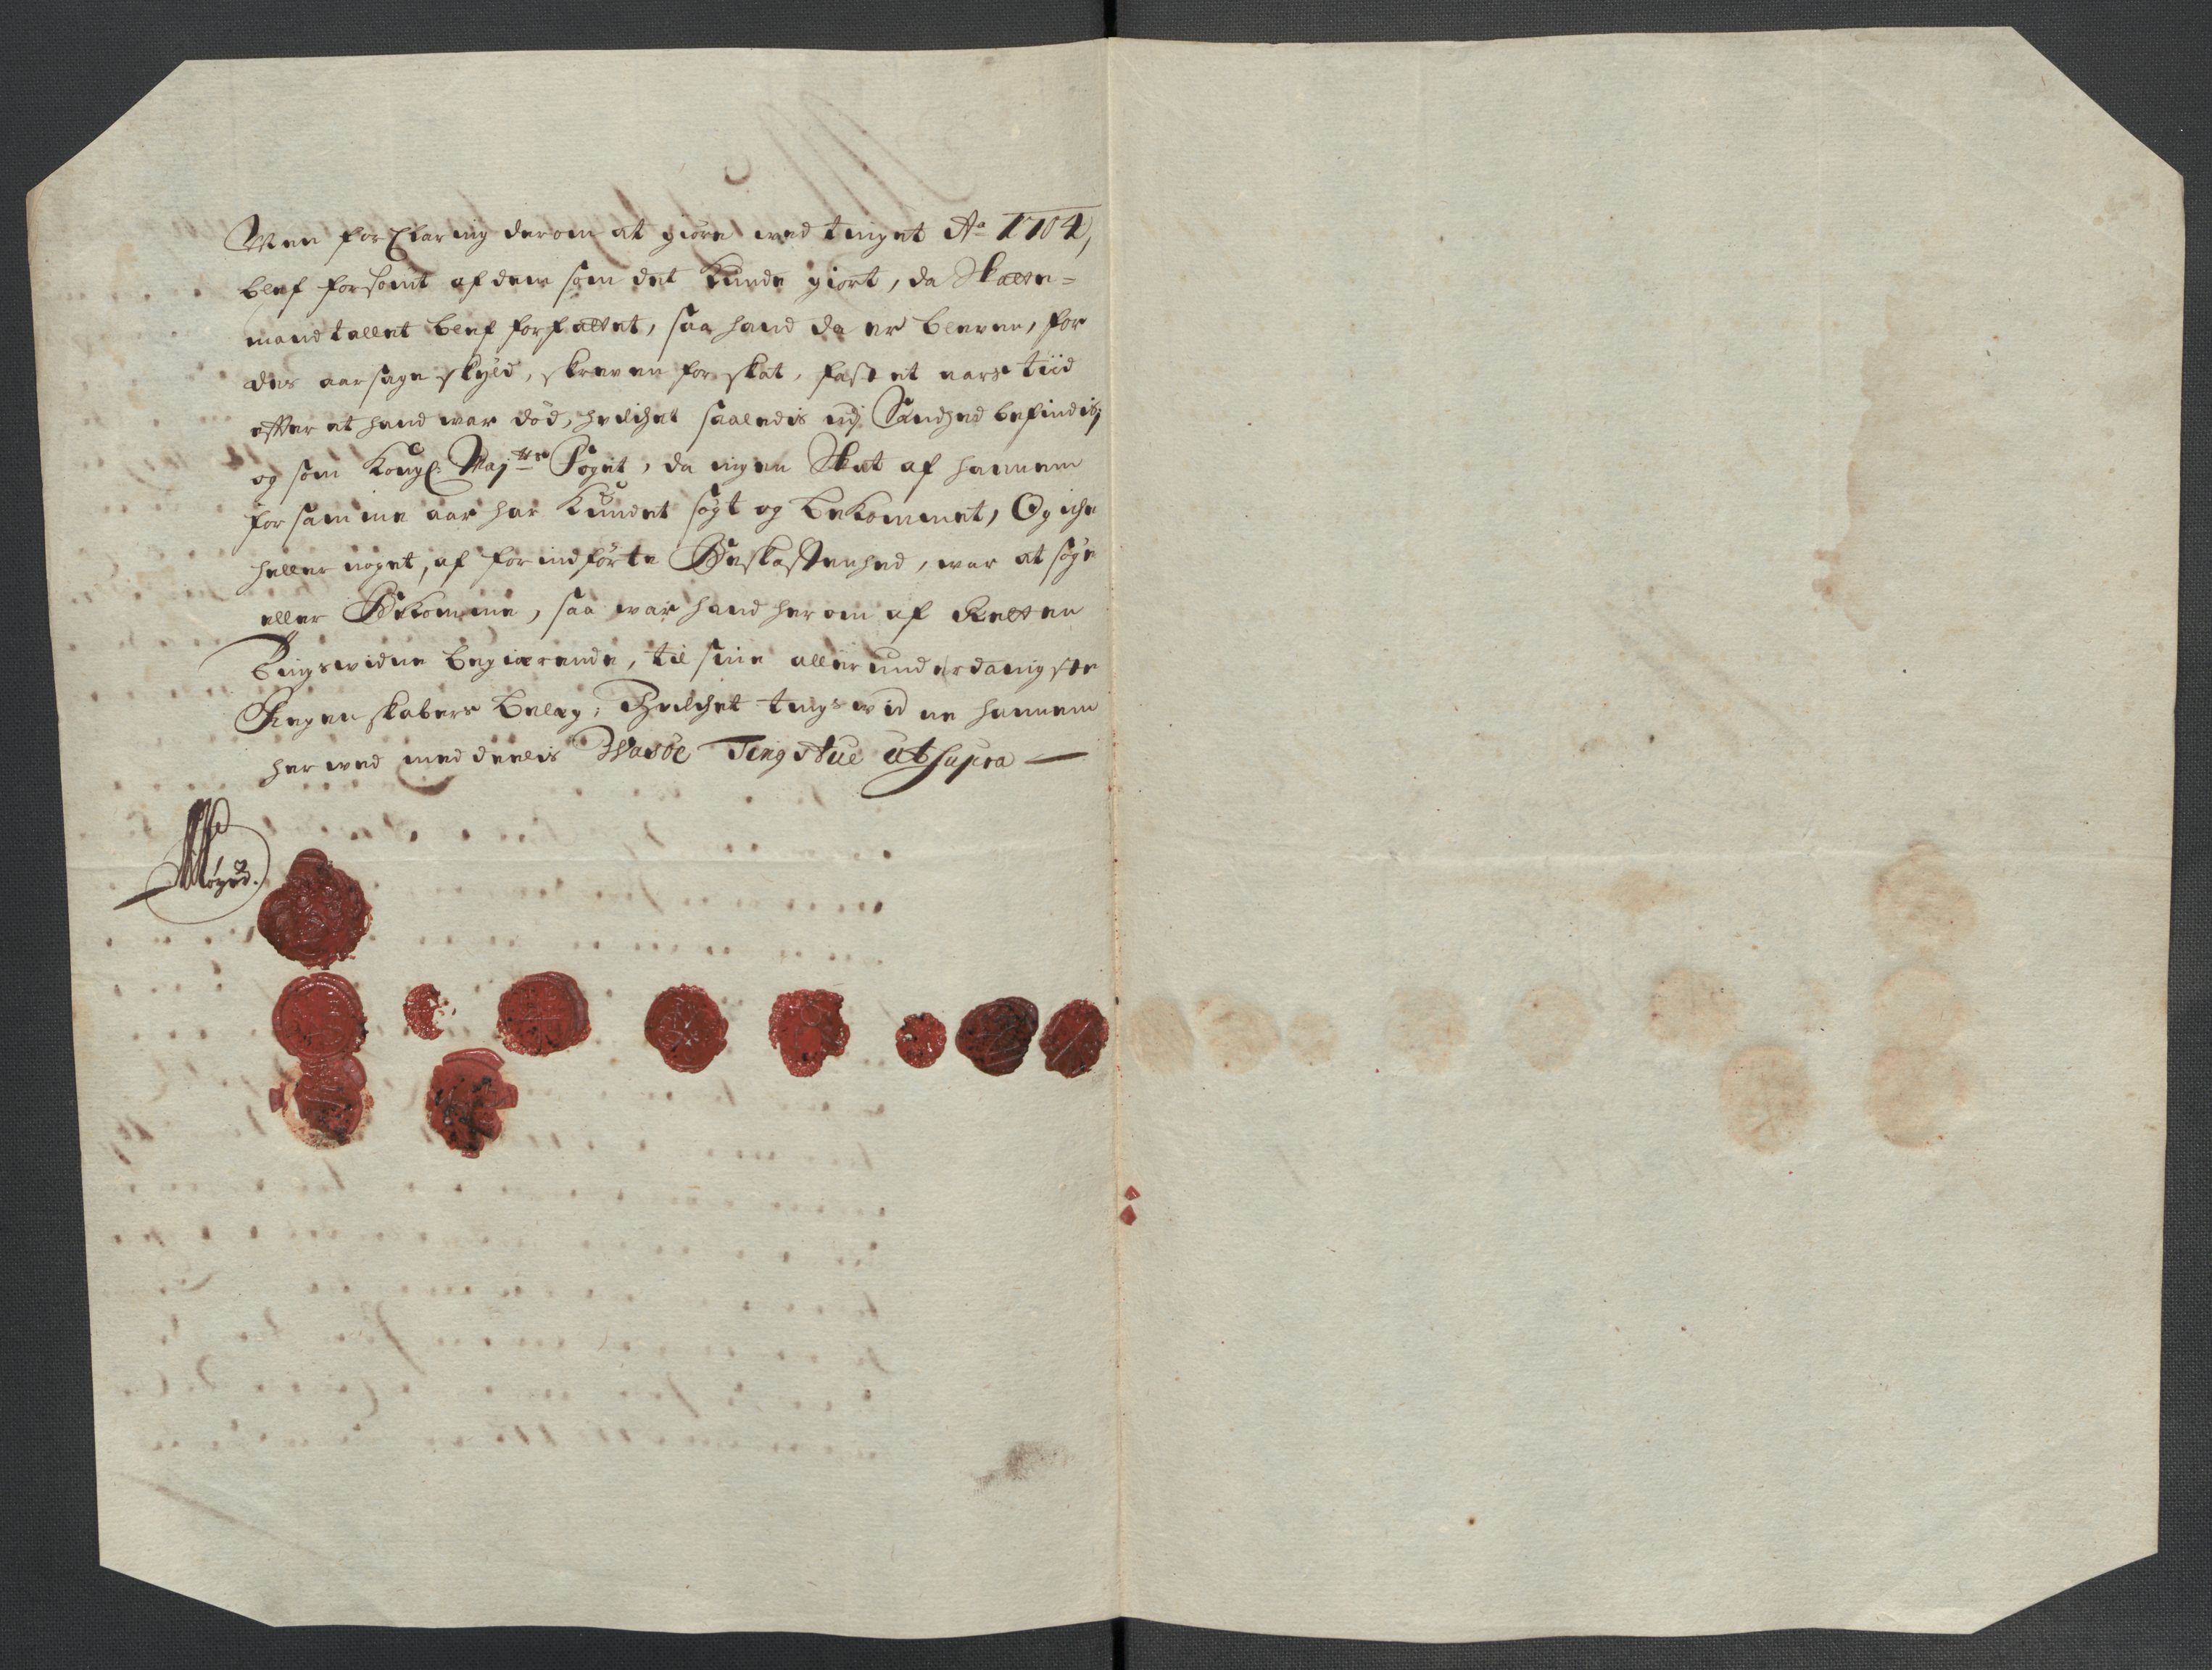 Men forClaring derom at giöre wed tinget Ao 1704,
blef forsömt af dem som det kunde giort, da Skatte-
mandtallet blef forfattet, saa hand da er bleven, for
den aarsage skyld, skreven for skat, fast et aars tiid
efter at hand war död, hvilchet saaledis udj Sandhed befindis,
og som Kongl: Maj:tts Fogit, da ingen Skat af hannem
for samme aar har kundet sögt og bekommet, Og iche
heller noget, af for indförte Beskaffenhed, war at söge
eller Bekomme, saa war hand her om af Retten
Tingswidne begierende, til sine allerunderdanigste
Regenskabers belæg; Hvilchet tingswidne hannem
her wed meddeelis Wasöe Ting Stue ut supra